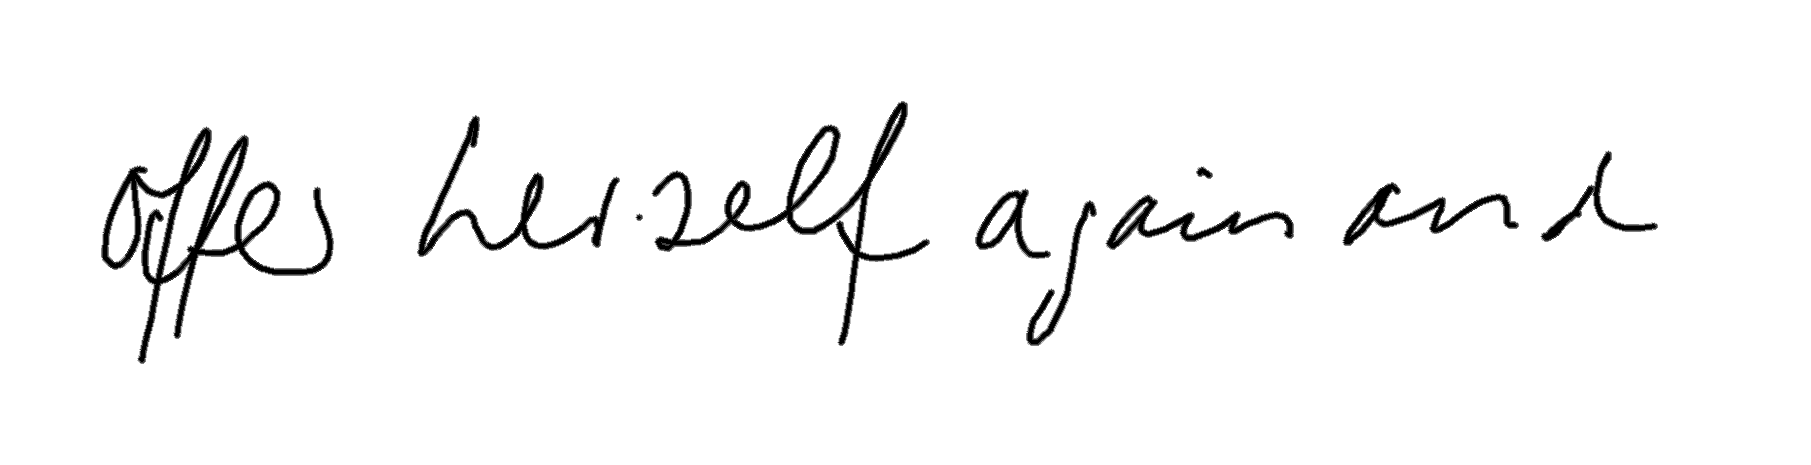 offers herself again and